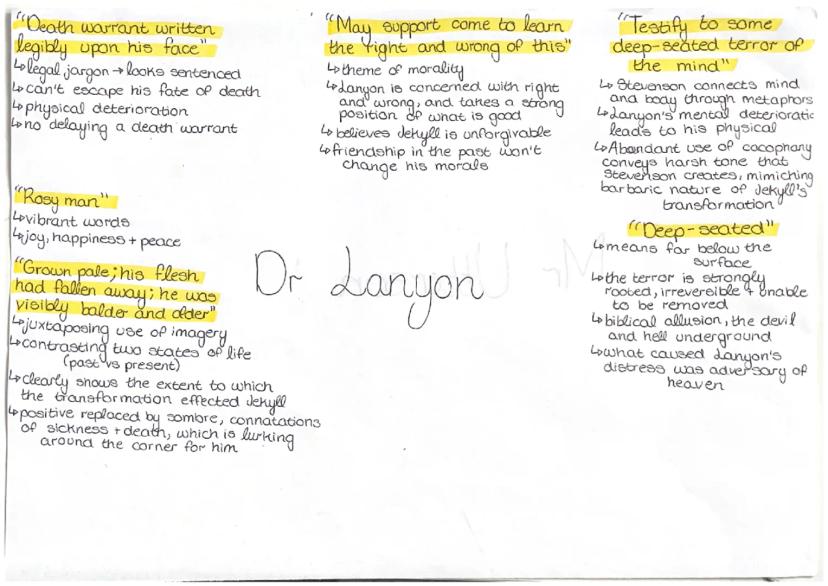 "Death warrant written
legibly upon his face"
↳legal jargon → looks sentenced
↳can't escape his fate of death
↳physical deterioration
↳no delaying a death warrant
"Rosy man"
↳vibrant words
↳joy, happiness + peace
"Grown pale; his flesh
had fallen away; he was
visibly balder and older"
↳juxtaposing use of imagery
↳contrasting two states of life
(past vs present)
↳clearly shows the extent to which
the transformation effected Jekyll
↳positive replaced by sombre, connatations
of sickness + death, which is lurking
around the corner for him
"May support come to learn
the right and wrong of this"
↳theme of morality
↳Lanyon is concerned with right
and wrong, and takes a strong
position of what is good
↳believes Jekyll is unforgivable
↳friendship in the past won't
change his morals
Dr Lanyon
"Testify to some
deep-seated terror of
the mind"
↳Stevenson connects mind
and body through metaphors
↳Lanyon's mental deterioratic
leads to his physical
↳Abundant use of cacophany
conveys harsh tone that
Stevenson creates, mimiching
barbaric nature of Jekyll's
transformation
"Deep-seated"
↳means far below the
surface
↳the terror is strongly
rooted, irreversible + unable
to be removed
↳biblical allusion, the devil
and hell underground
↳what caused Lanyon's
distress was adversary of
heaven